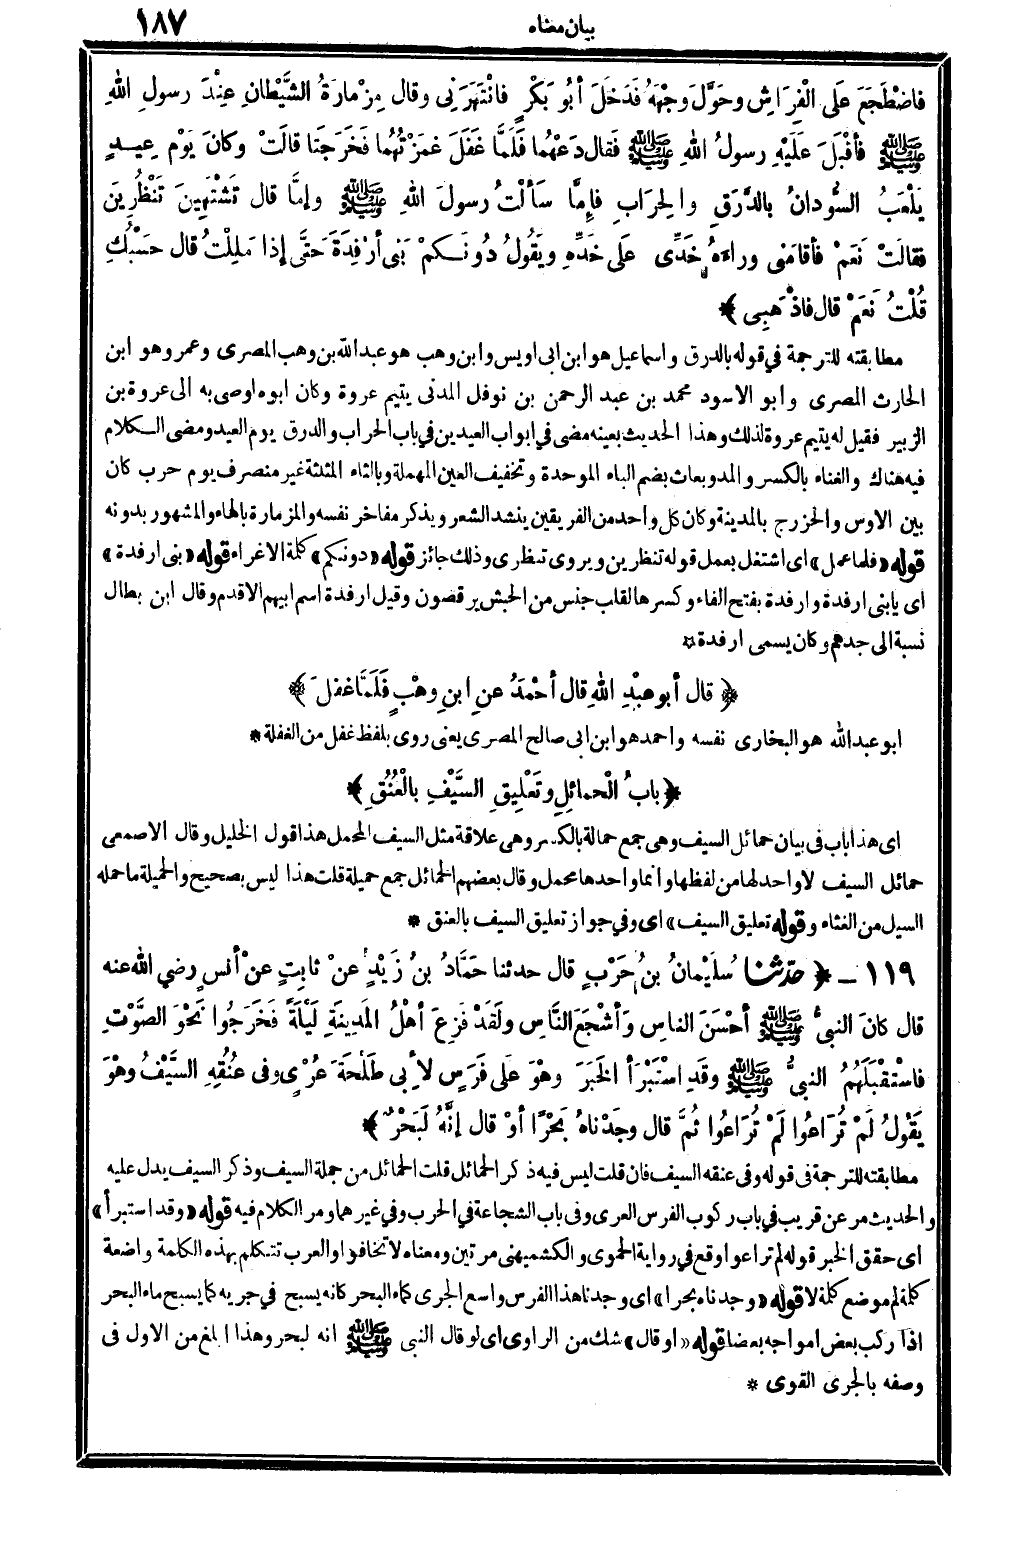 بيان معناه ١٨٧
فاضْطَجَعَ عَلَى الْفِرَاشِ وحَوَّلَ وجْهَهُ فَدَخَلَ أبُو بَكْرٍ فانْتَهَرَنِي وقال مِزْمارَةُ الشَّيْطانِ عِنْدَ رسولِ اللهِ
ﷺ فأقْبَلَ عَلَيْهِ رسولُ اللهِ ﷺ فَقال دَعْهُما فَلَمَّا غَفَلَ غَمَزْتُهُما فَخَرَجَتا قالَتْ وكانَ يَوْم عِيدٍ
يَلْعَبُ السُّودانُ بالدَّرَقِ والحِرَابِ فإمَّا سَألْتُ رسولَ اللهِ ﷺ وإمَّا قال تَشْتَهِينَ تَنْظُرِينَ
فقالَتْ نَعَمْ فأقامَنِى وراءَهُ خَدِّى عَلَى خَدِّهِ ويَقُولُ دُونَكمْ بَنِى أرْفِدَةَ حَتَّى إذا مَلِلْتُ قال حَسْبُكِ
قُلْتُ نَعَمْ قال فاذْهَبِى ﴾
مطابقته للترجمة في قوله بالدرق واسماعيل هو ابن ابى اويس وابن وهب هو عبد الله بن وهب المصرى وعمرو هو ابن
الحارث المصرى وابو الاسود محمد بن عبد الرحمن بن نوفل المدنى يتيم عروة وكان ابوه اوصى به الى عروة بن
الزبير فقيل له يتيم عروة لذلك وهذا الحديث بعينه مضى في ابواب العيدين في باب الحراب والدرق يوم العيد ومضى الكلام
فيه هناك والغناء بالكسر والمد وبعاث بضم الباء الموحدة وتخفيف العين المهملة وبالثاء المثلثة غير منصرف يوم حرب كان
بين الاوس والخزرج بالمدينة وكان كل واحد من الفريقين ينشد الشعر ويذكر مفاخر نفسه والمزمارة بالهاء والمشهور بدونه
قوله «فلما عمل» اى اشتغل بعمل قوله تنظرين ويروى تنظرى وذلك جائز قوله «دونكم» كلمة الاغراء قوله «بنى ارفدة»
اى يابنى ارفدة وارفدة بفتح الفاء وكسرها لقلب جنس من الحبش يرقصون وقيل ارفدة اسم ابيهم الاقدم وقال ابن بطال
نسبة الى جدهم وكان يسمى ارفدة
﴿ قال أبو عبْدِ اللهِ قال أحْمَدُ عنِ ابنِ وهْبٍ فَلَمَّا غفَلَ ﴾
ابو عبد الله هو البخارى نفسه واحمد هو ابن ابى صالح المصرى يعنى روى بلفظ غفل من الغفلة *
﴿ بابُ الْحمائِلِ وتَعْلِيقِ السَّيْفِ بالْعُنُقِ ﴾
اى هذا باب فى بيان حمائل السيف وهى جمع حمالة بالكسر وهى علاقة مثل السيف المحمل هذا قول الخليل وقال الاصمعى
حمائل السيف لا واحد لها من لفظها وانما واحدها محمل وقال بعضهم الحمائل جمع حميلة قلت هذا ليس بصحيح والحميلة ما حمله
السيل من الغثاء وقوله تعليق السيف» اى وفي جواز تعليق السيف بالعنق *
١١٩ ـ ﴿ حدّثنا سُلَيْمانُ بنُ حَرْبٍ قال حدثنا حَمَّادُ بنُ زَيْدٍ عنْ ثابِتٍ عنْ أنَسٍ رضي الله عنه
قال كانَ النبيُّ ﷺ أحْسَنَ الناسِ وَأشْجَعَ النَّاسِ ولَقَدْ فَزِعَ أهْلُ المَدِينَةِ لَيْلَةً فَخَرَجُوا نَحْوَ الصَّوْتِ
فاسْتَقْبَلَهُمُ النبيُّ ﷺ وقَدِ اسْتَبْرَأ الخَبَرَ وهْوَ عَلَى فَرَسٍ لأبِى طَلْحَةَ عُرْىٍ وفى عنُقِهِ السَّيْفُ وهْوَ
يَقُولُ لَمْ تُرَاعُوا لَمْ تُرَاعُوا ثُمَّ قال وجَدْناهُ بَحْرًا أوْ قال إنَّهُ لَبَحْرٌ ﴾
مطابقته للترجمة فى قوله وفى عنقه السيف فان قلت ليس فيه ذكر الحمائل قلت الحمائل من جملة السيف وذكر السيف يدل عليه
والحديث مر عن قريب في باب ركوب الفرس العرى وفى باب الشجاعة في الحرب وفي غيرهما ومر الكلام فيه قوله «وقد استبرأ»
اى حقق الخبر قوله لم تراعوا وقع في رواية الحموى والكشميهنى مرتين ومعناه لا تخافوا والعرب تتكلم بهذه الكلمة واضعة
كلمة لم موضع كلمة لا قوله «وجدناه بحرا» اى وجدنا هذا الفرس واسع الجرى كماء البحر كانه يسبح في جريه كما يسبح ماء البحر
اذا ركب بعض امواجه بعضا قوله «او قال» شك من الراوى اى لو قال النبى ﷺ انه لبحر وهذا ابلغ من الاول فى
وصفه بالجرى القوى *